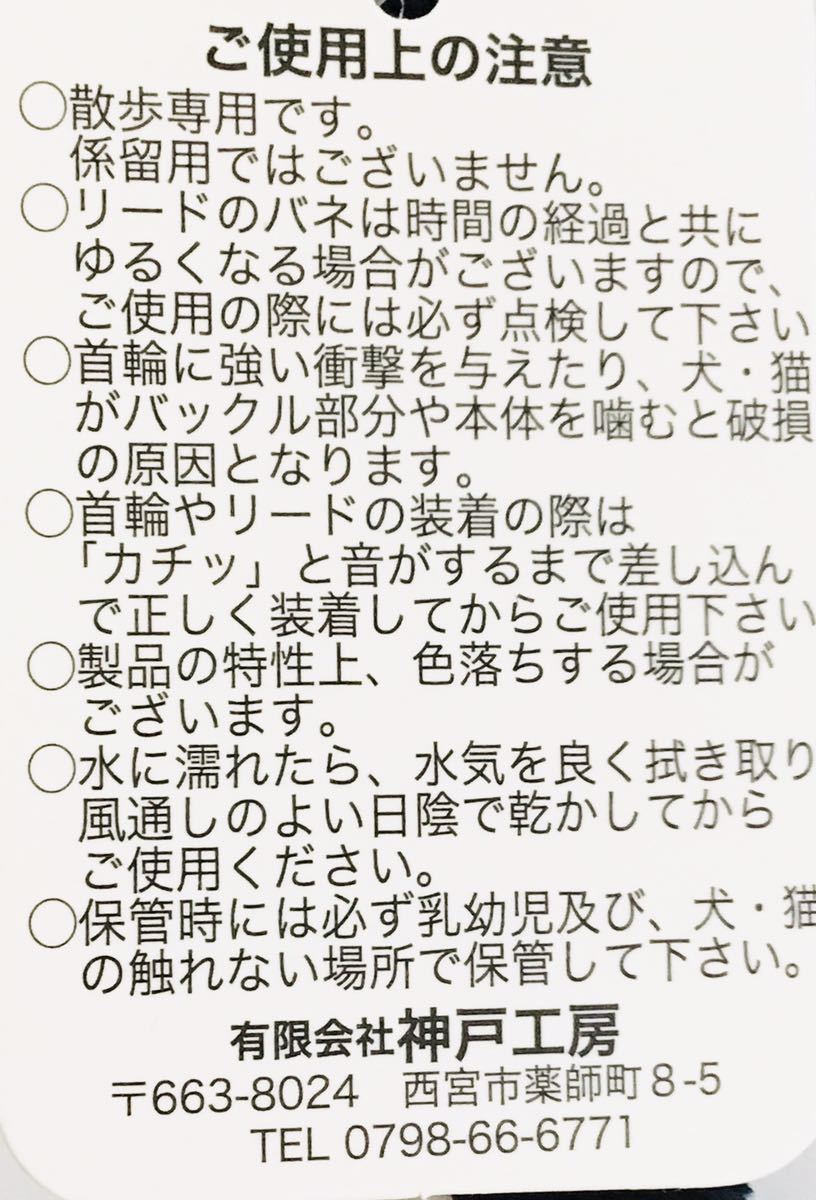 ご使用上の注意
○散歩専用です。
係留用ではございません。
○リードのバネは時間の経過と共に
ゆるくなる場合がございますので、
ご使用の際には必ず点検して下さい
○首輪に強い衝撃を与えたり、犬・猫
がバックル部分や本体を噛むと破損
の原因となります。
○首輪やリードの装着の際は
「カチッ」と音がするまで差し込ん
で正しく装着してからご使用下さい
○製品の特性上、色落ちする場合が
ございます。
○水に濡れたら、水気を良く拭き取り
風通しのよい日陰で乾かしてから
ご使用ください。
○保管時には必ず乳幼児及び、犬・猫
の触れない場所で保管して下さい。
有限会社神戸工房
〒663-8024 西宮市薬師町8-5
TEL 0798-66-6771